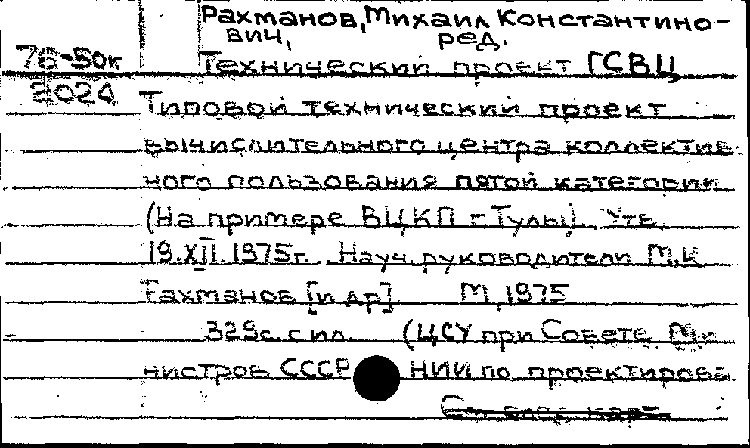 Рахманов, Михаил Константино-
вич, ред.
76-50к Технический проект ГСВЦ
2024 Типовой технический проект
вычислительного центра коллектив
ного пользования пятой категории
(На примере ВЦКП г Тулы). Утв.
19.XII.1975г. Науч. руководители М.К
Рахманов [и др] М, 1975
329с. с ил. (ЦСУ при Совете Ми
нистров СССР НИИ по проектирова